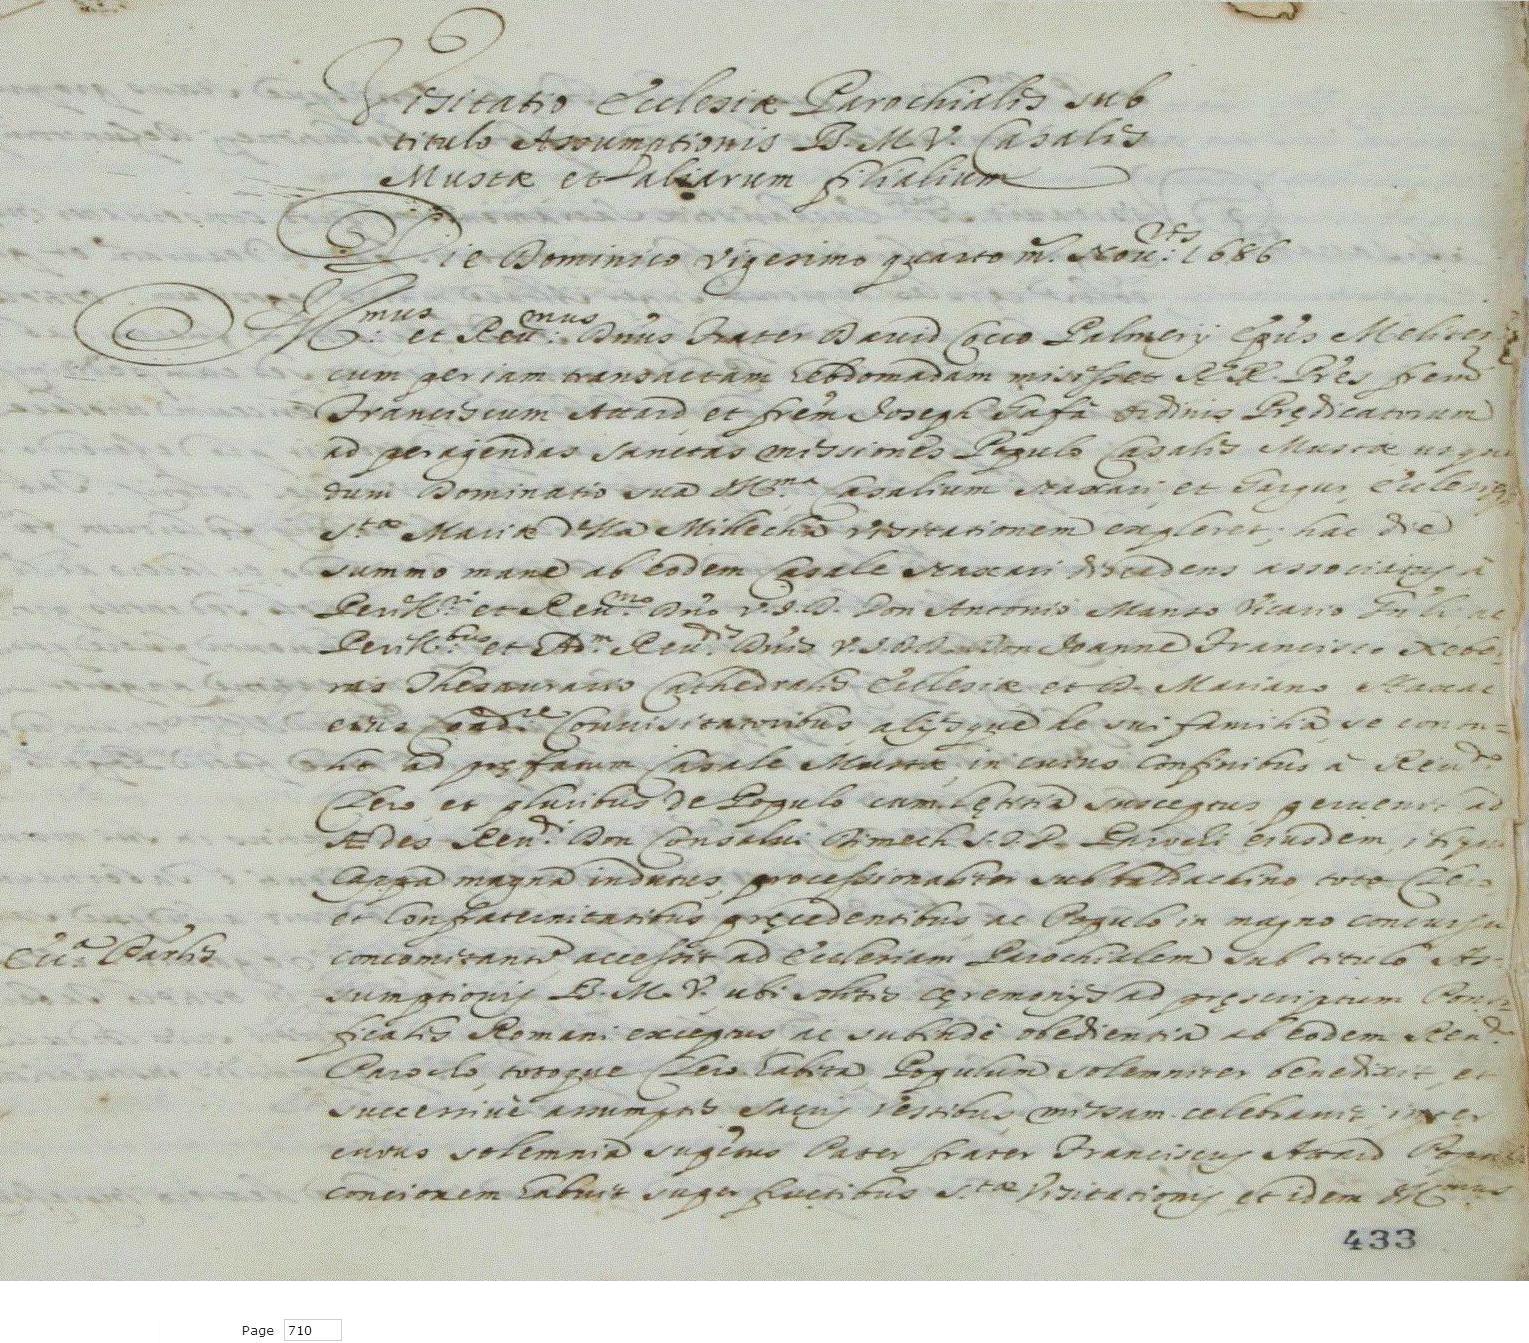 Visitatio Ecclesiæ Parochialis sub
titulo Assumptionis B. M. V. Casalis
Mustæ et aliarum filialium
Die Dominico vigesimo quarto m. Nov.ris 1686
Ill.mus et Reu.mus Dnus Frater Dauid Cocco Palmerij Epus Meliten
cum per iam transactam hebdomadam misisset R.R. Pres frem
Franciscum Attard, et frem Joseph Safà ordinis Prędicatorum
ad peragendas sanctas missiones Populo Casalis Mustæ, usque
dum Dominatio sua Ill.ma Casalium Naxari, et Gargur, Ecclesiæ
S.tæ Mariæ dlla visitationem expleret, hac die
summo mane ab eodem Casale Naxari discedens associatus à
Perill.ri et Reu.mo Dno V.J.D. Don Antonio Manso Vicario Gnli ac
Perill.bus et Adm. Reu.dis Dnis V.J.D.D. Don Joanne Francisco Xebe-
ras Thesaurario Cathedralis Ecclesiæ et D. Mariano
eius Conuisitatoribus, alijsque de sui familia, se contu-
lit ad pręfatum Casale Mustæ, in cuius confinibus à Reu.do
Clero, et pluribus de Populo cum lętitia susceptus, peruenit ad
Ædes Reu.di Don Consalui Dimech S.T.P. Parochi eiusdem, ibique
Cappa magna indutus, processionaliter sub baldachino, toto Clero
et Confraternitatibus pręcedentibus, ac Populo in magno concursu
Ecc.a Parlis
concomitante accessit ad Ecclesiam Parochialem sub titulo As-
sumptionis B. M. V. ubi solitis cęremonijs ad pręscriptum Ponti-
ficalis Romani exceptus, ac subinde obedientia ab eodem Reu.do
Parocho, totoque Clero habita, Populum solemniter benedixit, et
successiuè assumptis sacris vestibus, missam celebrauit; inter
cuius solemnia supctus Pater frater Franciscus Attard
concionem habuit super fructibus S.tæ Visitationis, et idem Ill.mus
433
Page 710